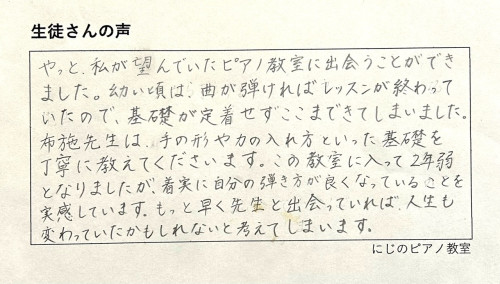 生徒さんの声
やっと、私が望んでいたピアノ教室に出会うことができ
ました。幼い頃は、曲が弾ければレッスンが終わって
いたので、基礎が定着せずここまできてしまいました。
布施先生は、手の形や力の入れ方といった基礎を
丁寧に教えてくださいます。この教室に入って2年弱
となりましたが、着実に自分の弾き方が良くなっていることを
実感しています。もっと早く先生と出会っていれば、人生も
変わっていたかもしれないと考えてしまいます。
にじのピアノ教室